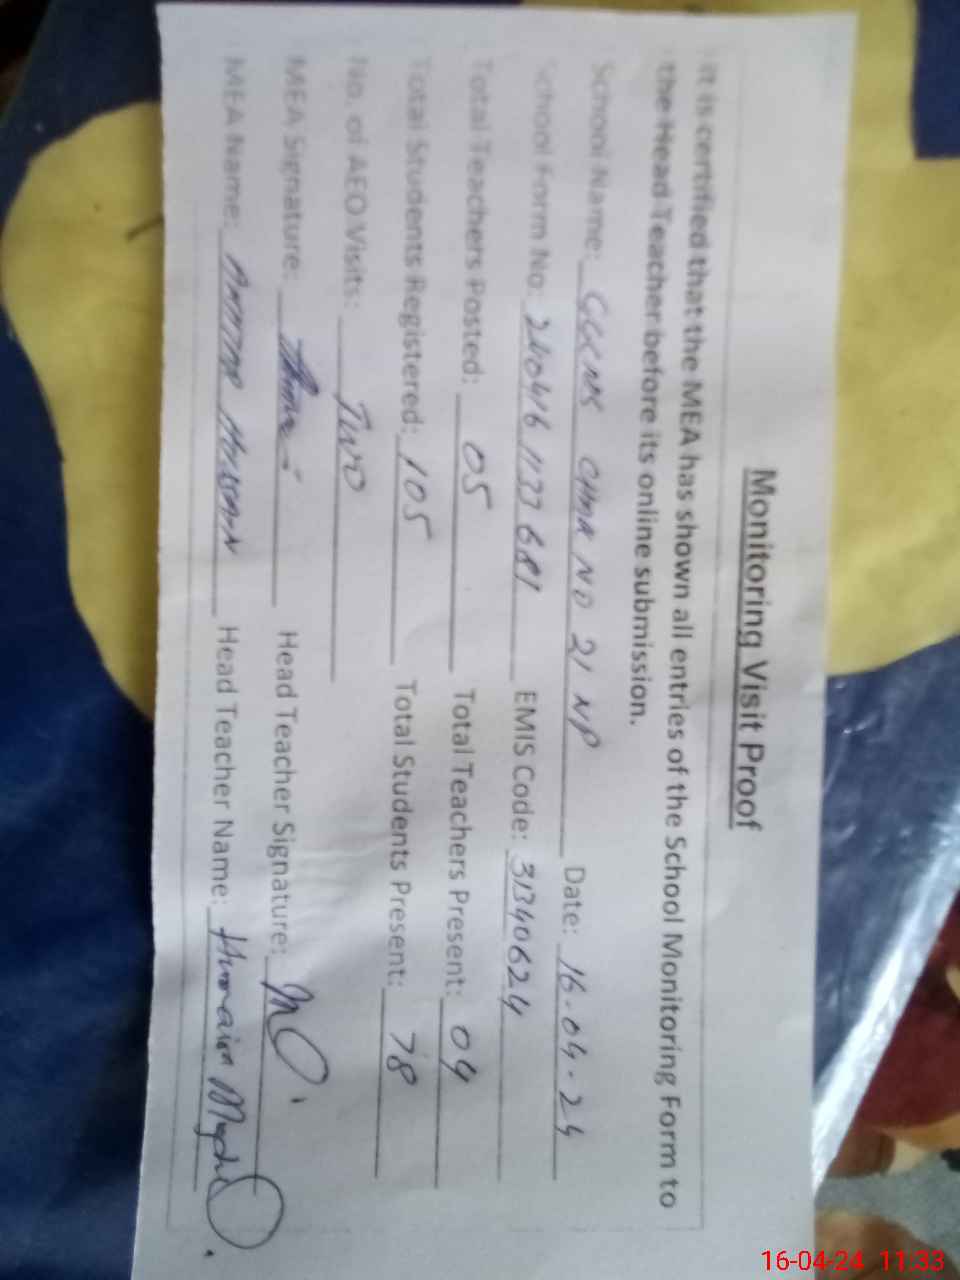 Monitoring Visit Proof
It is certified that the MEA has shown all entries of the School Monitoring Form to
the Head Teacher before its online submission.
School Name: CHAK NO 21 NP Date: 16-04-24
School Form No: 240416 1133 681 EMIS Code: 31340624
Total Teachers Posted: 05 Total Teachers Present: 04
Total Students Registered: 105 Total Students Present: 78
No. of AEO Visits: Two
MEA Signature: Head Teacher Signature:
MEA Name: Head Teacher Name: Humaira
16-04-24 11:33